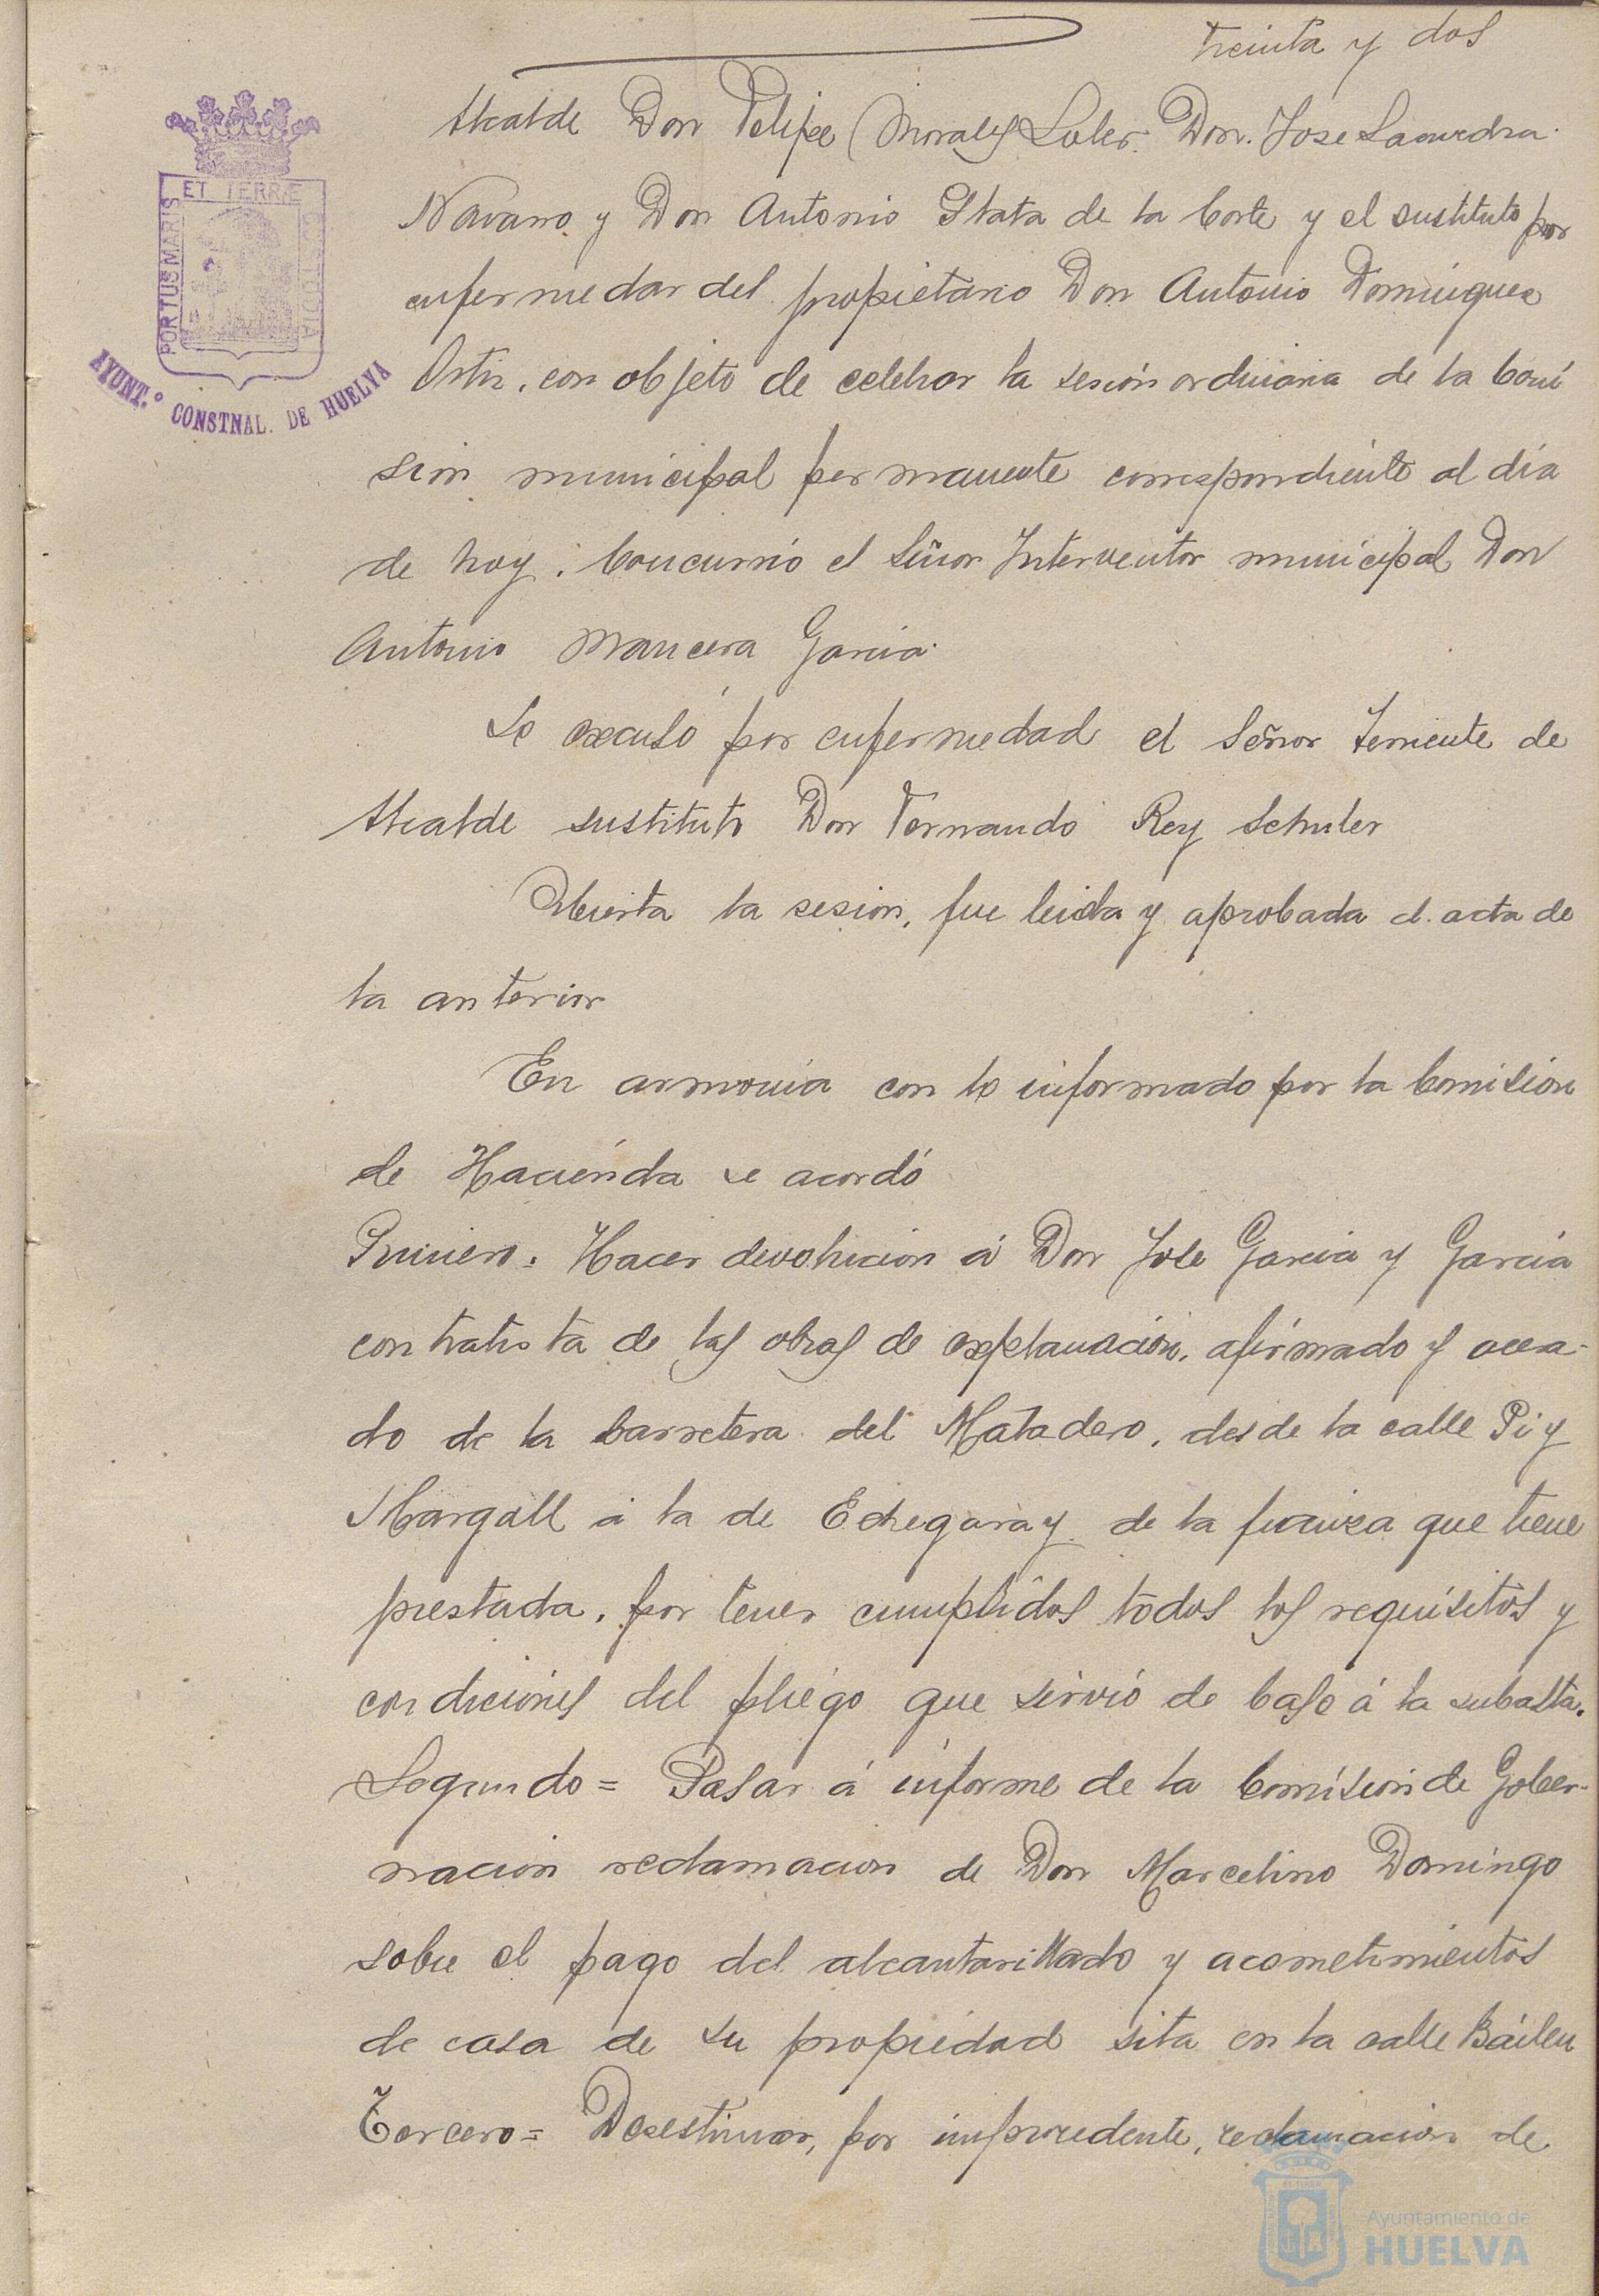 treinta y dos
Alcalde Don Felipe Morales Soler. Don. Jose Saavedra
Navarro, y Don Antonio Plata de la Corte y el sustituto por
enfermedar del propietario Don Antonio Dominguez
Ortiz, con objeto de celebrar la sesión ordinaria de la Comi
sion municipal permanente correspondiente al dia
de hoy. Concurrió el Señor Interventor municipal Don
Antonio Mancera Garcia.
Se excusó por enfermedad el Señor Teniente de
Alcalde sustituto Don Fernando Rey Schuler
Abierta la sesion, fue leida y aprobada el acta de
la anterior
En armonia con lo informado por la Comision
de Hacienda se acordó
Primero: Hacer devolucion á Don Jose Garcia y Garcia
contratista de las obras de explanación, afirmado y acera-
do de la Carretera del Matadero, desde la calle Pi y
Margall á la de Echegaray de la fianza que tiene
prestada, por tener cumplidos todos los requisitos y
condiciones del pliego que sirvió de base á la subasta.
Segundo = Pasar á informe de la Comision de Gober-
nacion reclamacion de Don Marcelino Domingo
sobre el pago del alcantarillado y acometimientos
de casa de su propiedad sita en la calle Bailen
Tercero = Desestimar, por improcedente, reclamacion de
PORTUS MARIS
ET TERRÆ
CUSTODIA
AYUNT.º CONSTNAL. DE HUELVA
Ayuntamiento de
HUELVA